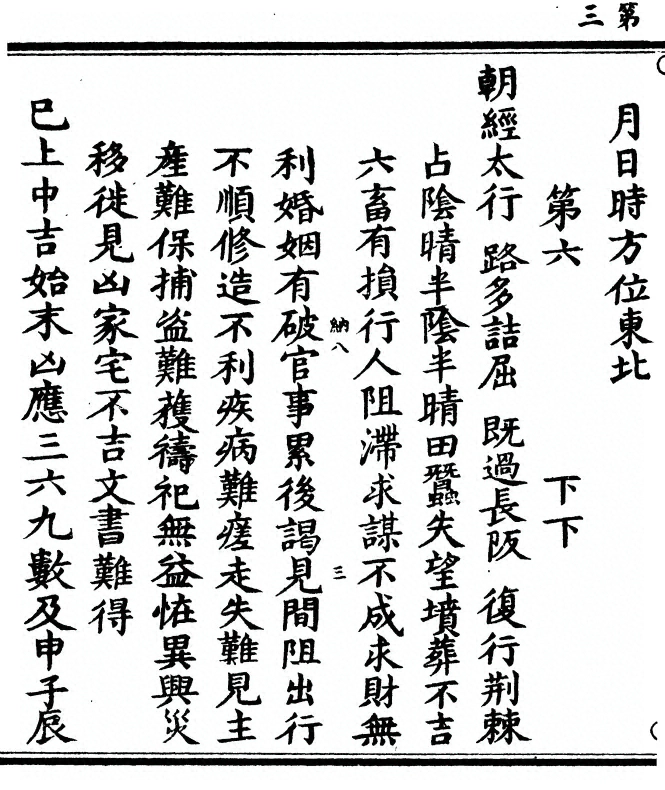 第三
月日時方位東北
第六 下下
朝經太行 路多詰屈 既過長阪 復行荆棘
占陰晴半陰半晴田蠶失望墳葬不吉
六畜有損行人阻滯求謀不成求財無
納八 三
利婚姻有破官事累後謁見間阻出行
不順修造不利疾病難瘥走失難見主
產難保捕盗難獲禱祀無益恠異興災
移徙見凶家宅不吉文書難得
巳上中吉始末凶應三六九數及申子辰